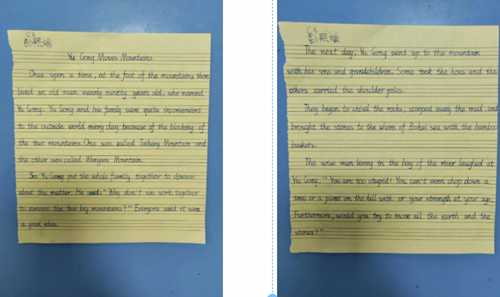 Yu Gong Moves Mountains
Once upon a time, at the foot of the mountains there
lived an old man nearly ninety years old, who named
Yu Gong. Yu Gong and his family were quite inconvenient
to the outside world every day because of the blocking of
the two mountains. One was called Taihang Mountain and
the other was called Wangwu Mountain.
So Yu Gong got the whole family together to discuss
about the matter. He said: " Why don't we work together
to remove the two big mountains? " Everyone said it was
a good idea.
The next day, Yu Gong went up to the mountain
with his sons and grandchildren. Some took the hoes and the
others carried the shoulder poles.
They began to the rocks, scooped away the mud, and
brought the stones to the shore of Bohai sea with the bamboo
baskets.
The wise man living in the bay of the river laughed at
Yu Gong, " You are too stupid! You can't even chop down a
tree or a on the hill with your strength at your age.
Furthermore, would you try to move all the earth and the
stones? "